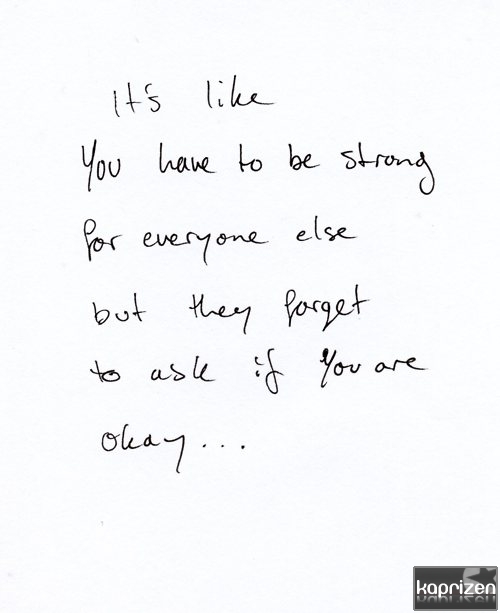 It's like
You have to be strong
for everyone else
but they forget
to ask if You are
okay...
kaprizen